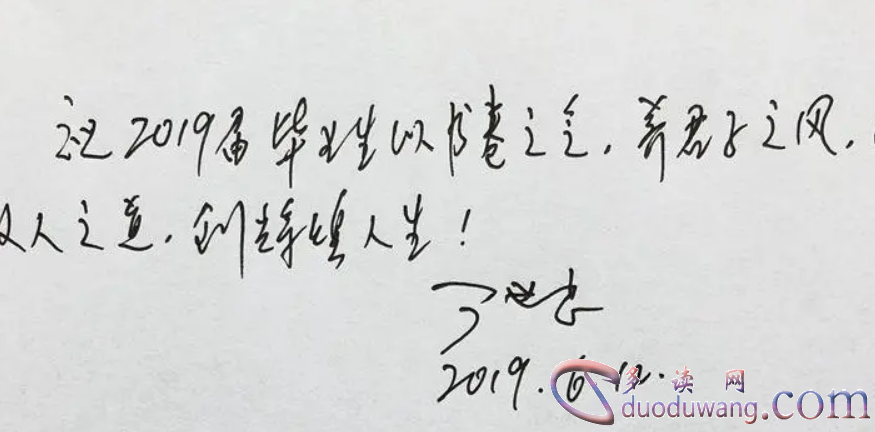 祝2019届毕业生以书卷之气，养君子之风，
人之道，创辉煌人生！
2019.6.12.
多读网
duoduwang.com